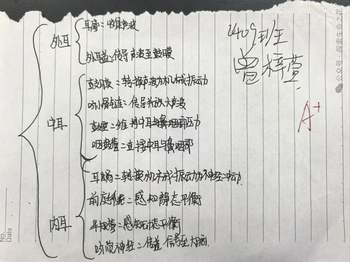 2409班
曾梓萱
A+
外耳
耳廓：收集声波
外耳道：传导声波至鼓膜
中耳
鼓膜：转换声波为机械振动
听小骨链：传导并放大声波
鼓室：维持中耳与鼻咽部压力
咽鼓管：连接中耳与鼻咽部
内耳
耳蜗：转换机械振动为神经冲动
前庭：感知静态平衡
半规管：感知动态平衡
听觉神经：传递信号至大脑
No.
Date